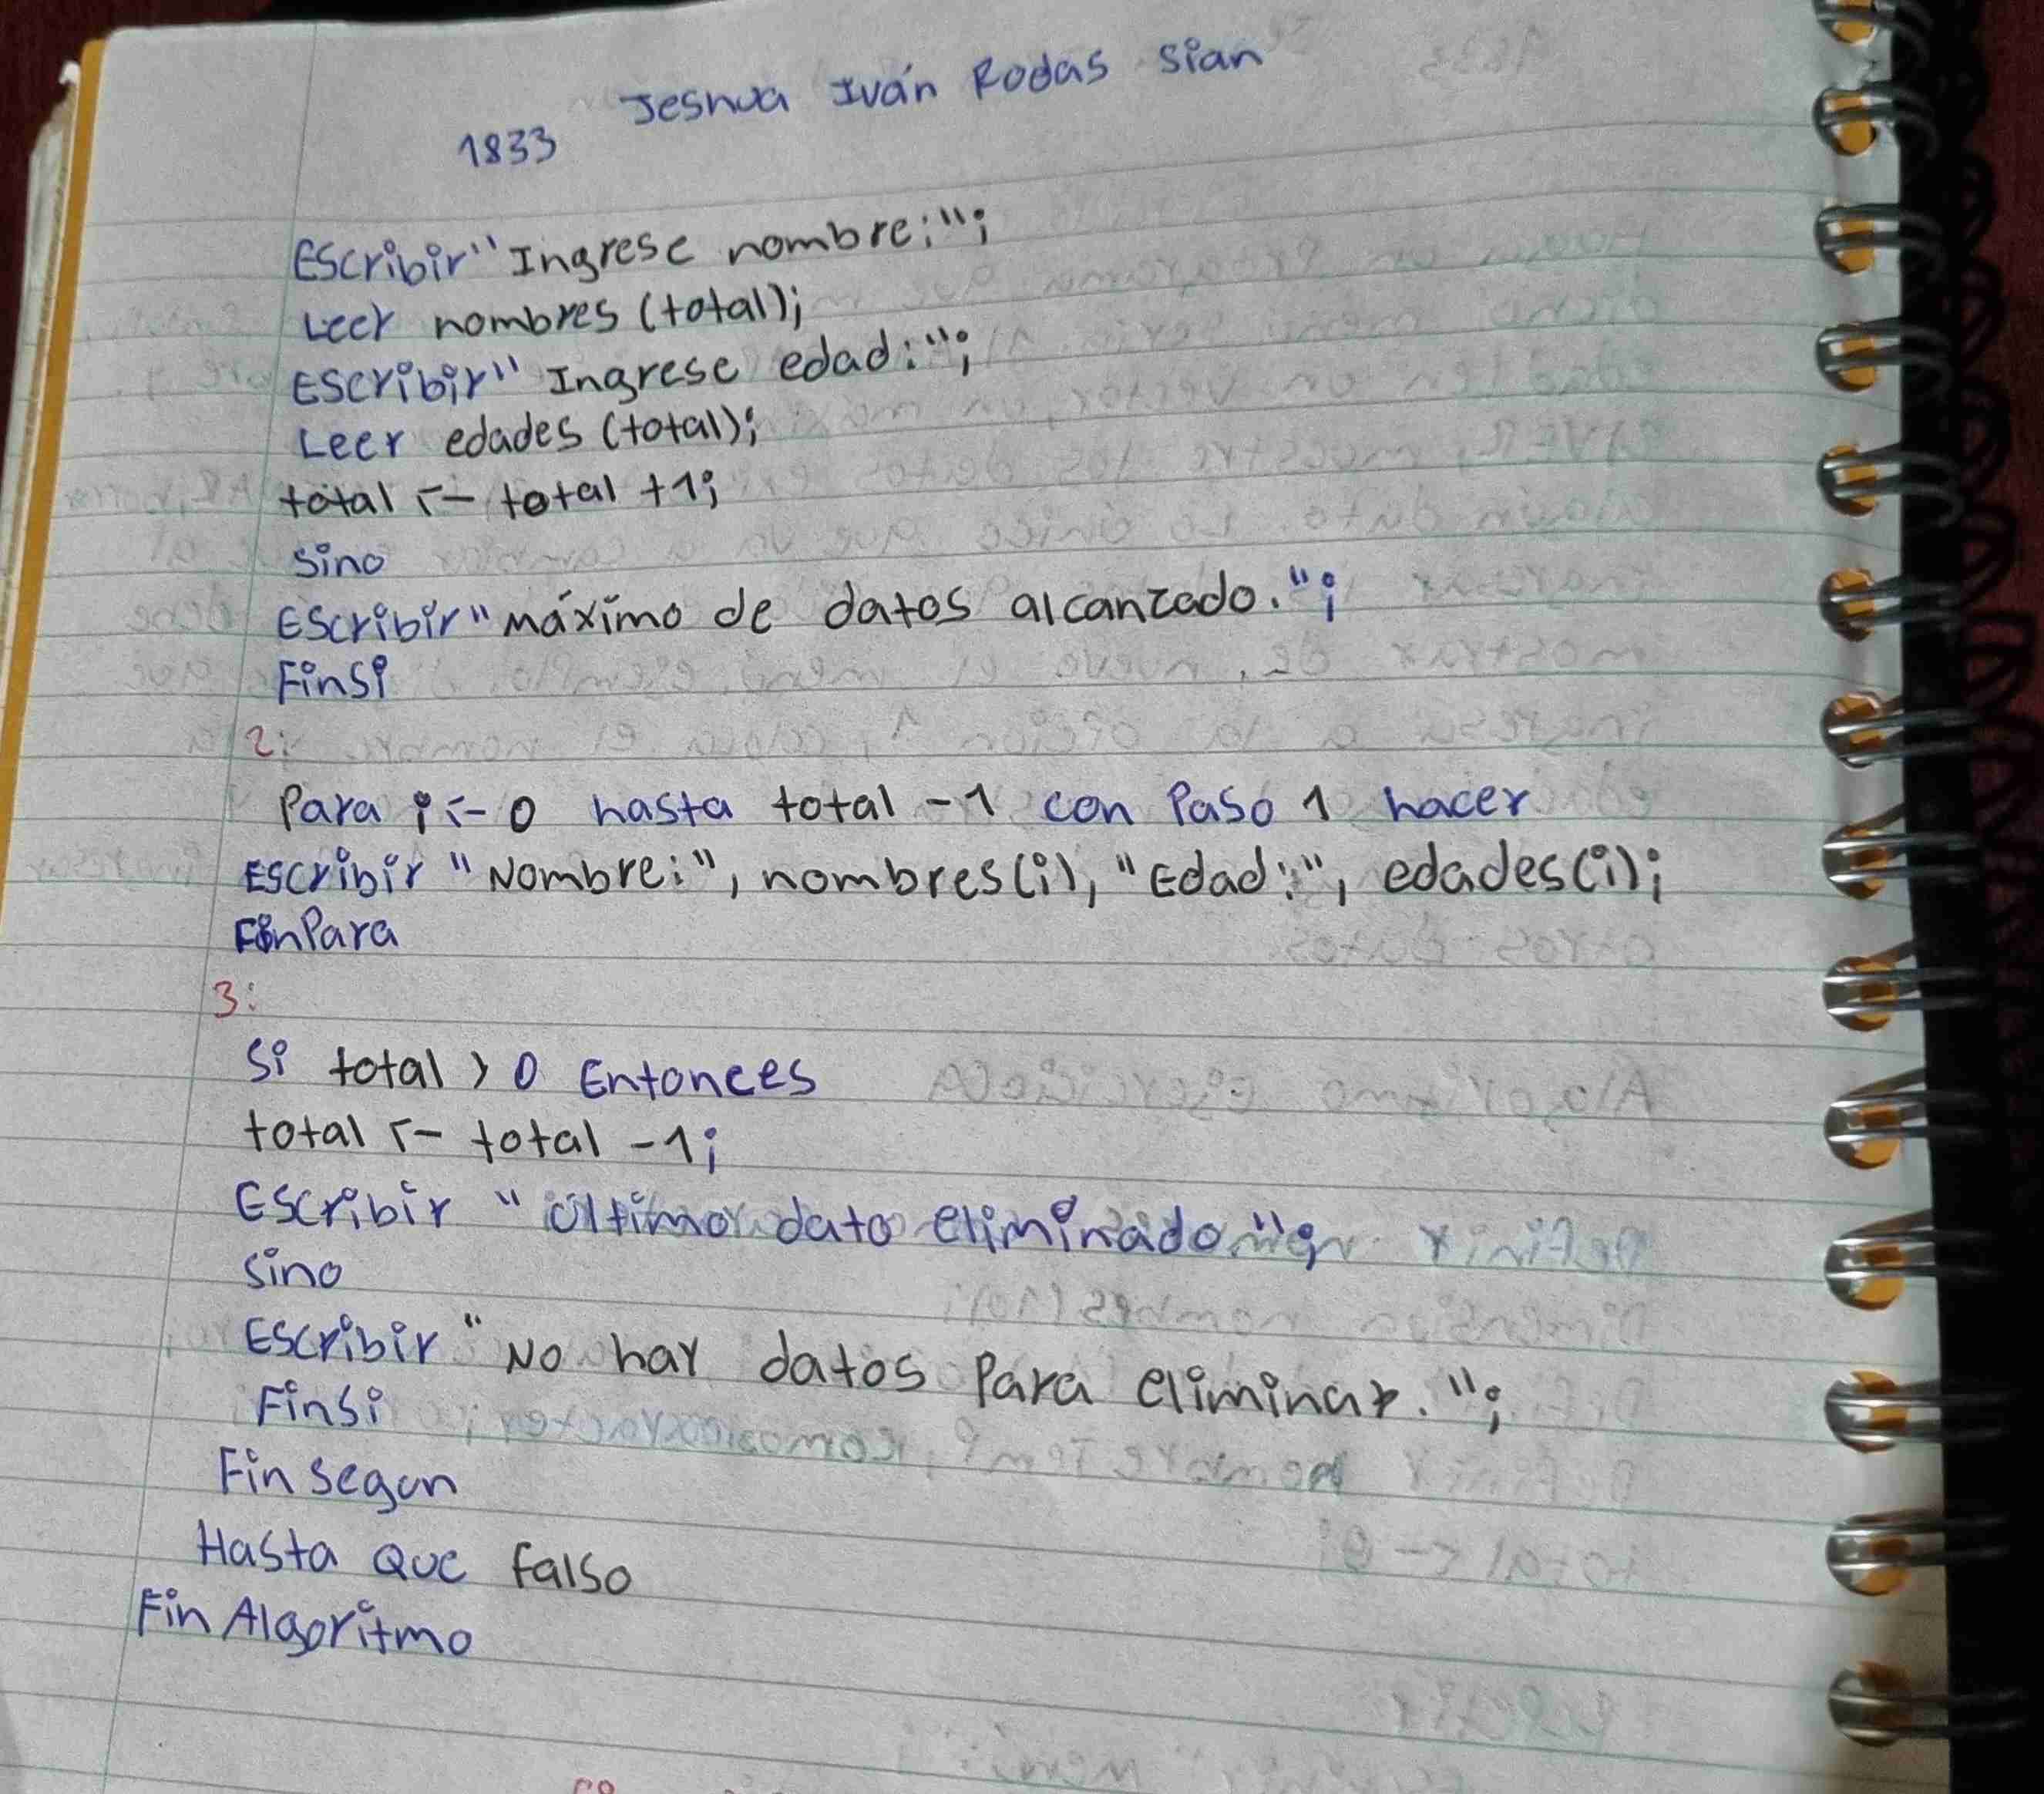 Jeshua Iván Rodas Sian
1833
Escribir "Ingrese nombre:";
Leer nombres (total);
Escribir "Ingrese edad:";
Leer edades (total);
total <- total +1;
Sino
Escribir "máximo de datos alcanzado.";
FinSi
2:
Para i <- 0 hasta total -1 con Paso 1 hacer
Escribir "Nombre:", nombres(i), "Edad:", edades(i);
FinPara
3:
Si total > 0 Entonces
total <- total -1;
Escribir "último dato eliminado";
Sino
Escribir "No hay datos Para eliminar.";
FinSi
Fin Segun
Hasta Que falso
Fin Algoritmo